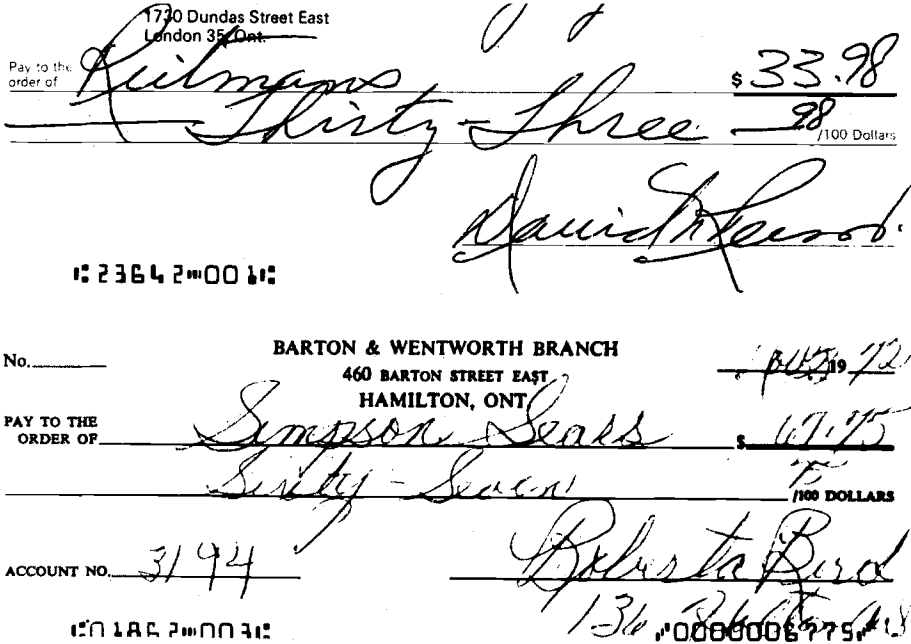 1730 Dundas Street East
London 35, Ont.
Pay to the order of Reitmans $ 33.98
Thirty-Three 98/100 Dollars
David
⑆23642⑉001⑆
BARTON & WENTWORTH BRANCH
No. 19 72
460 BARTON STREET EAST
HAMILTON, ONT
PAY TO THE ORDER OF Simpson Sears $ 67.75
Sixty-Seven 75/100 DOLLARS
ACCOUNT NO. 3194 Roberta Bird
136